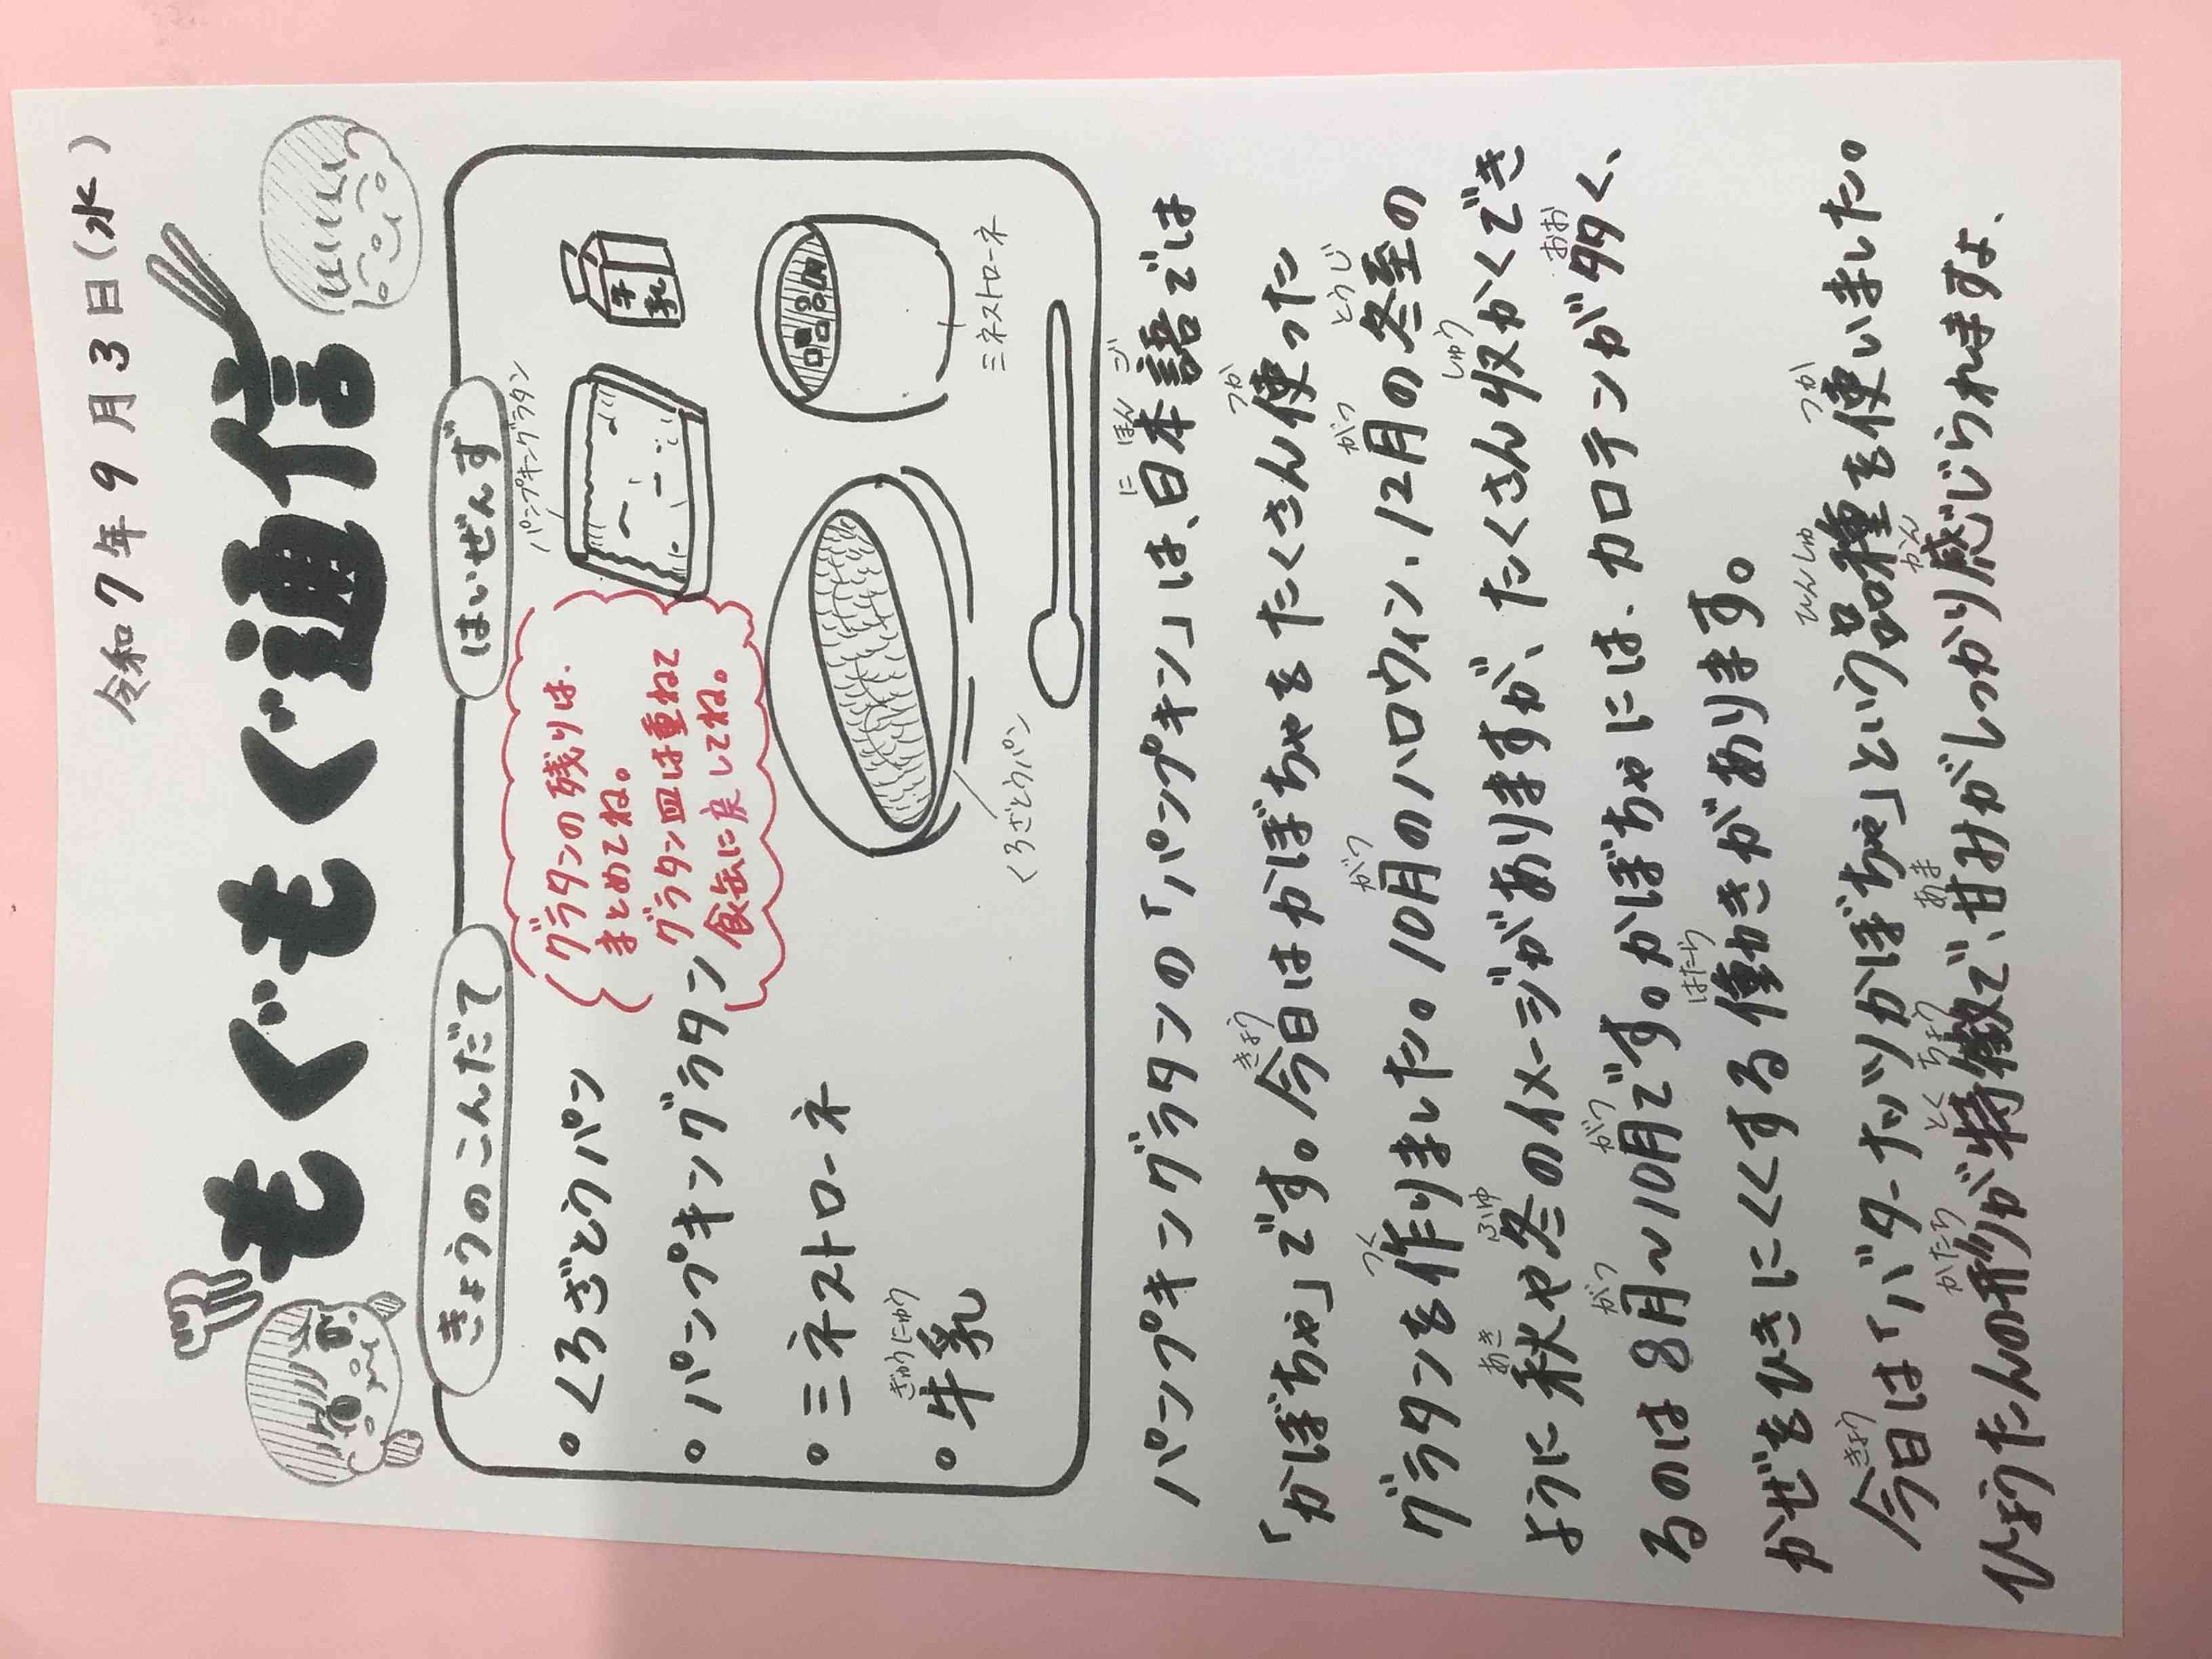 令和7年9月3日(水)
もぐもぐ通信
きょうのこんだて
・くろざとうパン
・パンプキングラタン
・ミネストローネ
・牛乳
ぎゅうにゅう
はいぜんず
グラタンの残りは、
まとめてね。
グラタン皿は重ねて
食缶に戻してね。
パンプキングラタン
牛乳
ミネストローネ
くろざとうパン
パンプキングラタンの「パンプキン」は、日本語では
にほんご
「かぼちゃ」です。今日はかぼちゃをたくさん使った
きょう つか
グラタンを作りました。10月のハロウィン、12月の冬至の
つく がつ がつ とうじ
ように秋や冬のイメージがありますが、たくさん収かくでき
あき ふゆ しゅう
るのは8月~10月です。かぼちゃには、カロテンが多く、
がつ がつ おお
かぜをひきにくくする働きがあります。
はたら
今日は「バターナッツかぼちゃ」という品種を使いました。
きょう ひんしゅ つか
ひょうたんの形が特徴で、甘みがしっかり感じられますよ、
かたち とくちょう あま かん